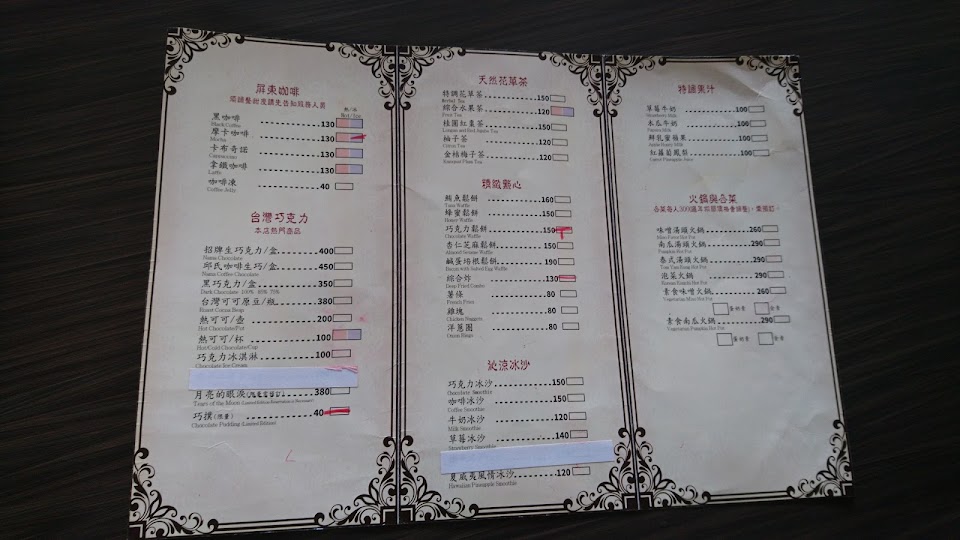 屏東咖啡
需調整甜度請先告知服務人員
熱/冰
Hot/Ice
黑咖啡 130
Black Coffee
摩卡咖啡 130
Mocha
卡布奇諾 130
Cappuccino
拿鐵咖啡 130
Latte
咖啡凍 40
Coffee Jelly
台灣巧克力
本店熱門商品
招牌生巧克力/盒 400
Nama Chocolate
邱氏咖啡生巧/盒 450
Nama Coffee Chocolate
黑巧克力/盒 350
Dark Chocolate 100% 85% 75%
台灣可可原豆/瓶 380
Roast Cocoa Bean
熱可可/壺 200
Hot Chocolate/Pot
熱可可/杯 100
Hot/Cold Chocolate/Cup
巧克力冰淇淋 100
Chocolate Ice Cream
月亮的眼淚 380
Tears of the Moon
巧撲(限量) 40
Chocolate Pudding (Limited Edition)
天然花草茶
特調花草茶 150
Herbal Tea
綜合水果茶 120
Fruit Tea
桂圓紅棗茶 150
Longan and Red Jujube Tea
柚子茶 120
Citron Tea
金桔梅子茶 120
Kumquat Plum Tea
精緻點心
鮪魚鬆餅 160
Tuna Waffle
蜂蜜鬆餅 150
Honey Waffle
巧克力鬆餅 150
Chocolate Waffle
杏仁芝麻鬆餅 150
Almond Sesame Waffle
鹹蛋培根鬆餅 190
Bacon with Salted Egg Waffle
綜合炸 130
Deep Fried Combo
薯條 80
French Fries
雞塊 80
Chicken Nuggets
洋蔥圈 80
Onion Rings
沁涼冰沙
巧克力冰沙 150
Chocolate Smoothie
咖啡冰沙 150
Coffee Smoothie
牛奶冰沙 120
Milk Smoothie
草莓冰沙 140
Strawberry Smoothie
夏威夷風情冰沙 120
Hawaiian Pineapple Smoothie
特調果汁
草莓牛奶 100
Strawberry Milk
木瓜牛奶 100
Papaya Milk
鮮乳蜜蘋果 100
Apple Honey Milk
紅蘿蔔鳳梨 100
火鍋與合菜
味噌湯頭火鍋 260
Miso Paste Hot Pot
南瓜湯頭火鍋 290
Pumpkin Hot Pot
泰式湯頭火鍋 290
Tom Yam Kung Hot Pot
泡菜火鍋 290
Korean Kimchi Hot Pot
素食味噌火鍋 260
Vegetarian Miso Hot Pot
蛋奶素 全素
素食南瓜火鍋 290
Vegetarian Pumpkin Hot Pot
蛋奶素 全素